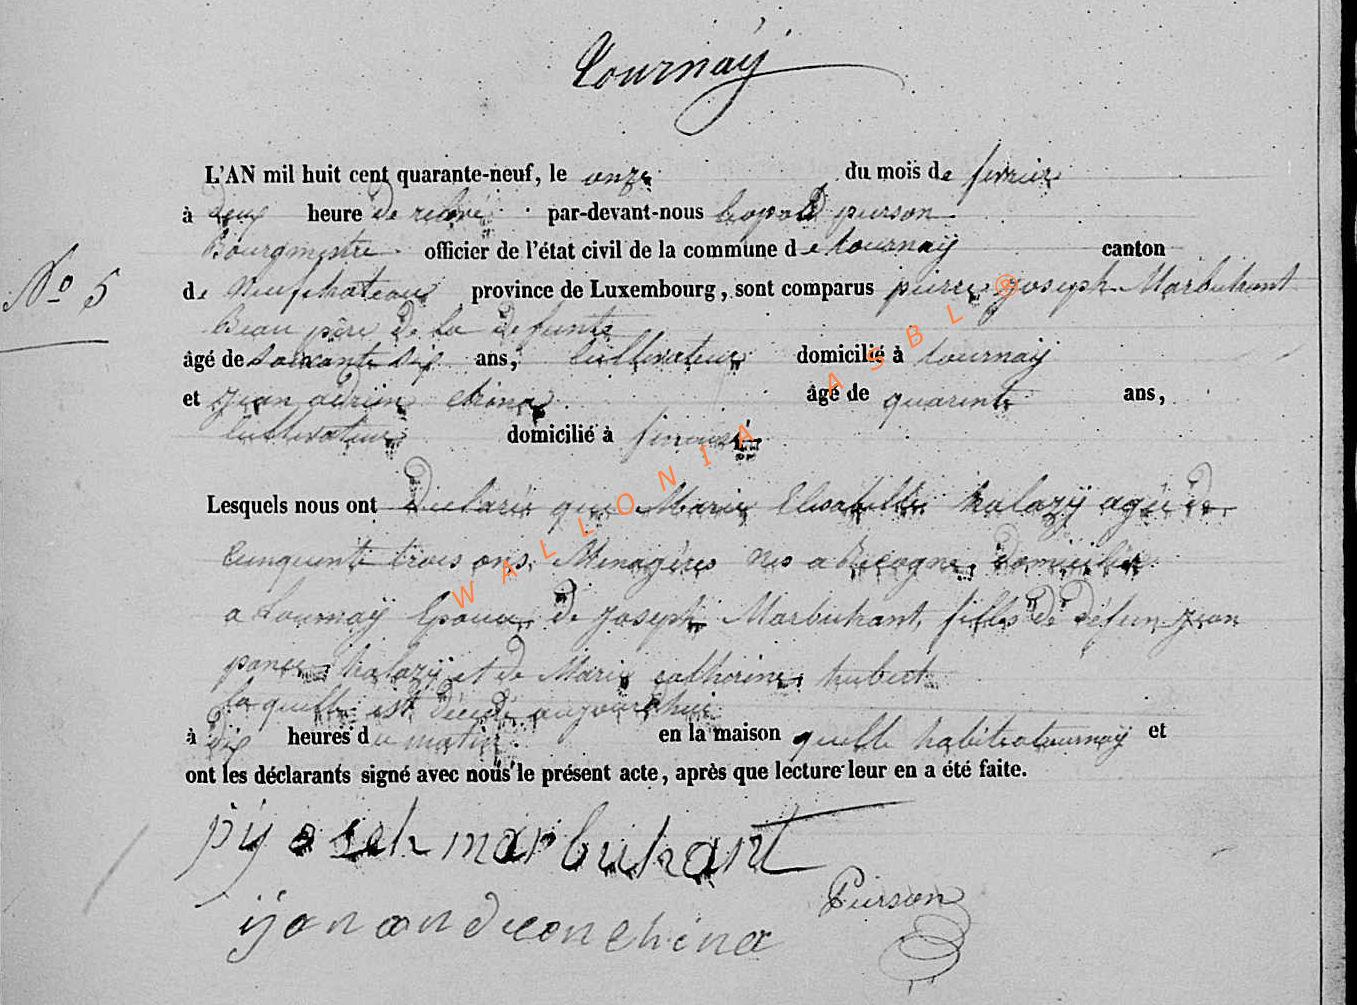 Tournaÿ
L'AN mil huit cent quarante-neuf, le onze du mois de fevrier
à deux heure de relevé par-devant-nous Leopold pierson
Bourgmestre officier de l'état civil de la commune de tournaÿ canton
N° 5
de Neufchateau province de Luxembourg, sont comparus pierre joseph Marbuhant
Beau père de la defunte
âgé de soixante dix ans, Cultivateur domicilié à tournaÿ
et jean adrien china âgé de quarente ans,
Cultivateur domicilié à
Lesquels nous ont Declarés que Marie Elisabette halazÿ agée de
Cunquente trois ans, Menagères née a Recogne, domiciliée
a tournaÿ Epouse de joseph Marbuhant, filles de défun jean
halazÿ et de Marie catherine hubert
laquelle est décédé aujourd'hui
à dix heures du matin en la maison quelle habite a tournaÿ et
ont les déclarants signé avec nous le présent acte, après que lecture leur en a été faite.
pijoseh marbuhant
Pierson
ijan andreen china
WALLONIA ASBL ®